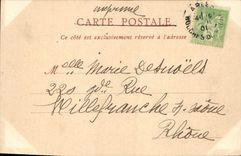 imprimé
CARTE POSTALE
Ce côté est exclusivement réservé à l'adresse
Melle Marie Desnoëls
220 Rue
Villefranche s. Saône
Rhône